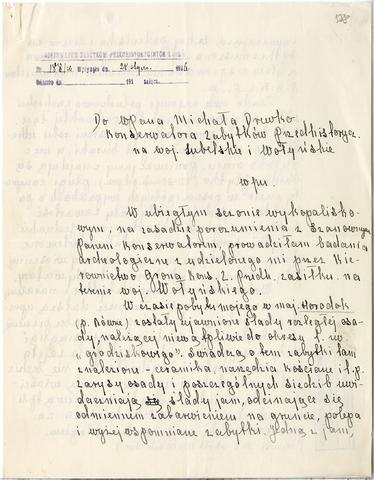 128
KONSERWATOR ZABYTKÓW PRZEDHISTORYCZNYCH
Nr. 188/26 Wpłynęło dn. 28 stycz. 1926
Odesłano dn. 193 załącz.
Do WPana Michała Drewko
Konserwatora Zabytków Przedhistorycz.
na woj. Lubelskie i Wołyńskie
w/m
W ubiegłym sezonie wykopalisko-
wym, na zasadzie porozumienia z Szanownym
Panem Konserwatorem, prowadziłam badania
archeologiczne z udzielonego mi przez Kie-
rownictwo Grona Kons. Z. Przedh. zasiłku na
terenie woj. Wołyńskiego.
W czasie pobytu mojego w maj. Horodok
(p. Równe) zostały ujawnione ślady rozległej osa-
dy, należącej niewątpliwie do okresu t. zw.
"grodziskowego". Świadczą o tem zabytki tam
znalezione - ceramika, narzędzia kościane i t. p.
zarysy osady i poszczególnych siedzib uwi-
daczniają ślady jam, odcinające się
odmiennem zabarwieniem na gruncie, polepa
i wyżej wspomniane zabytki. Jedną z jam,